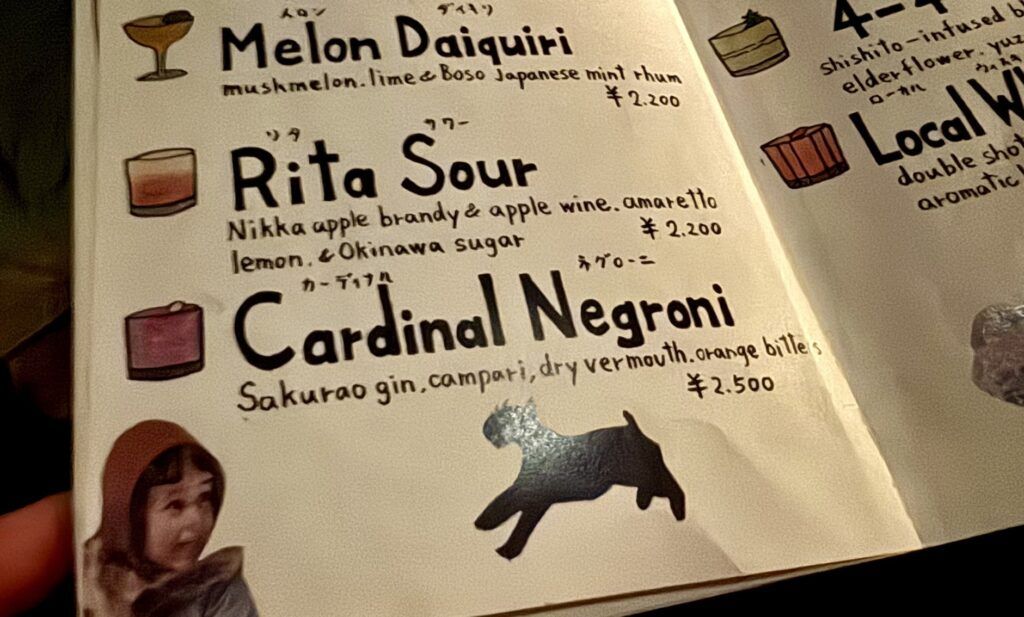 メロン ダイキリ
Melon Daiquiri
mushmelon. lime & Boso Japanese mint rhum
¥2.200
リタ サワー
Rita Sour
Nikka apple brandy & apple wine. amaretto
lemon. & Okinawa sugar
¥2.200
カーディナル ネグローニ
Cardinal Negroni
Sakurao gin. campari, dry vermouth. orange bitters
¥2.500
shishito-infused
elderflower. yuz
ローカル
Local W
double shot
aromatic